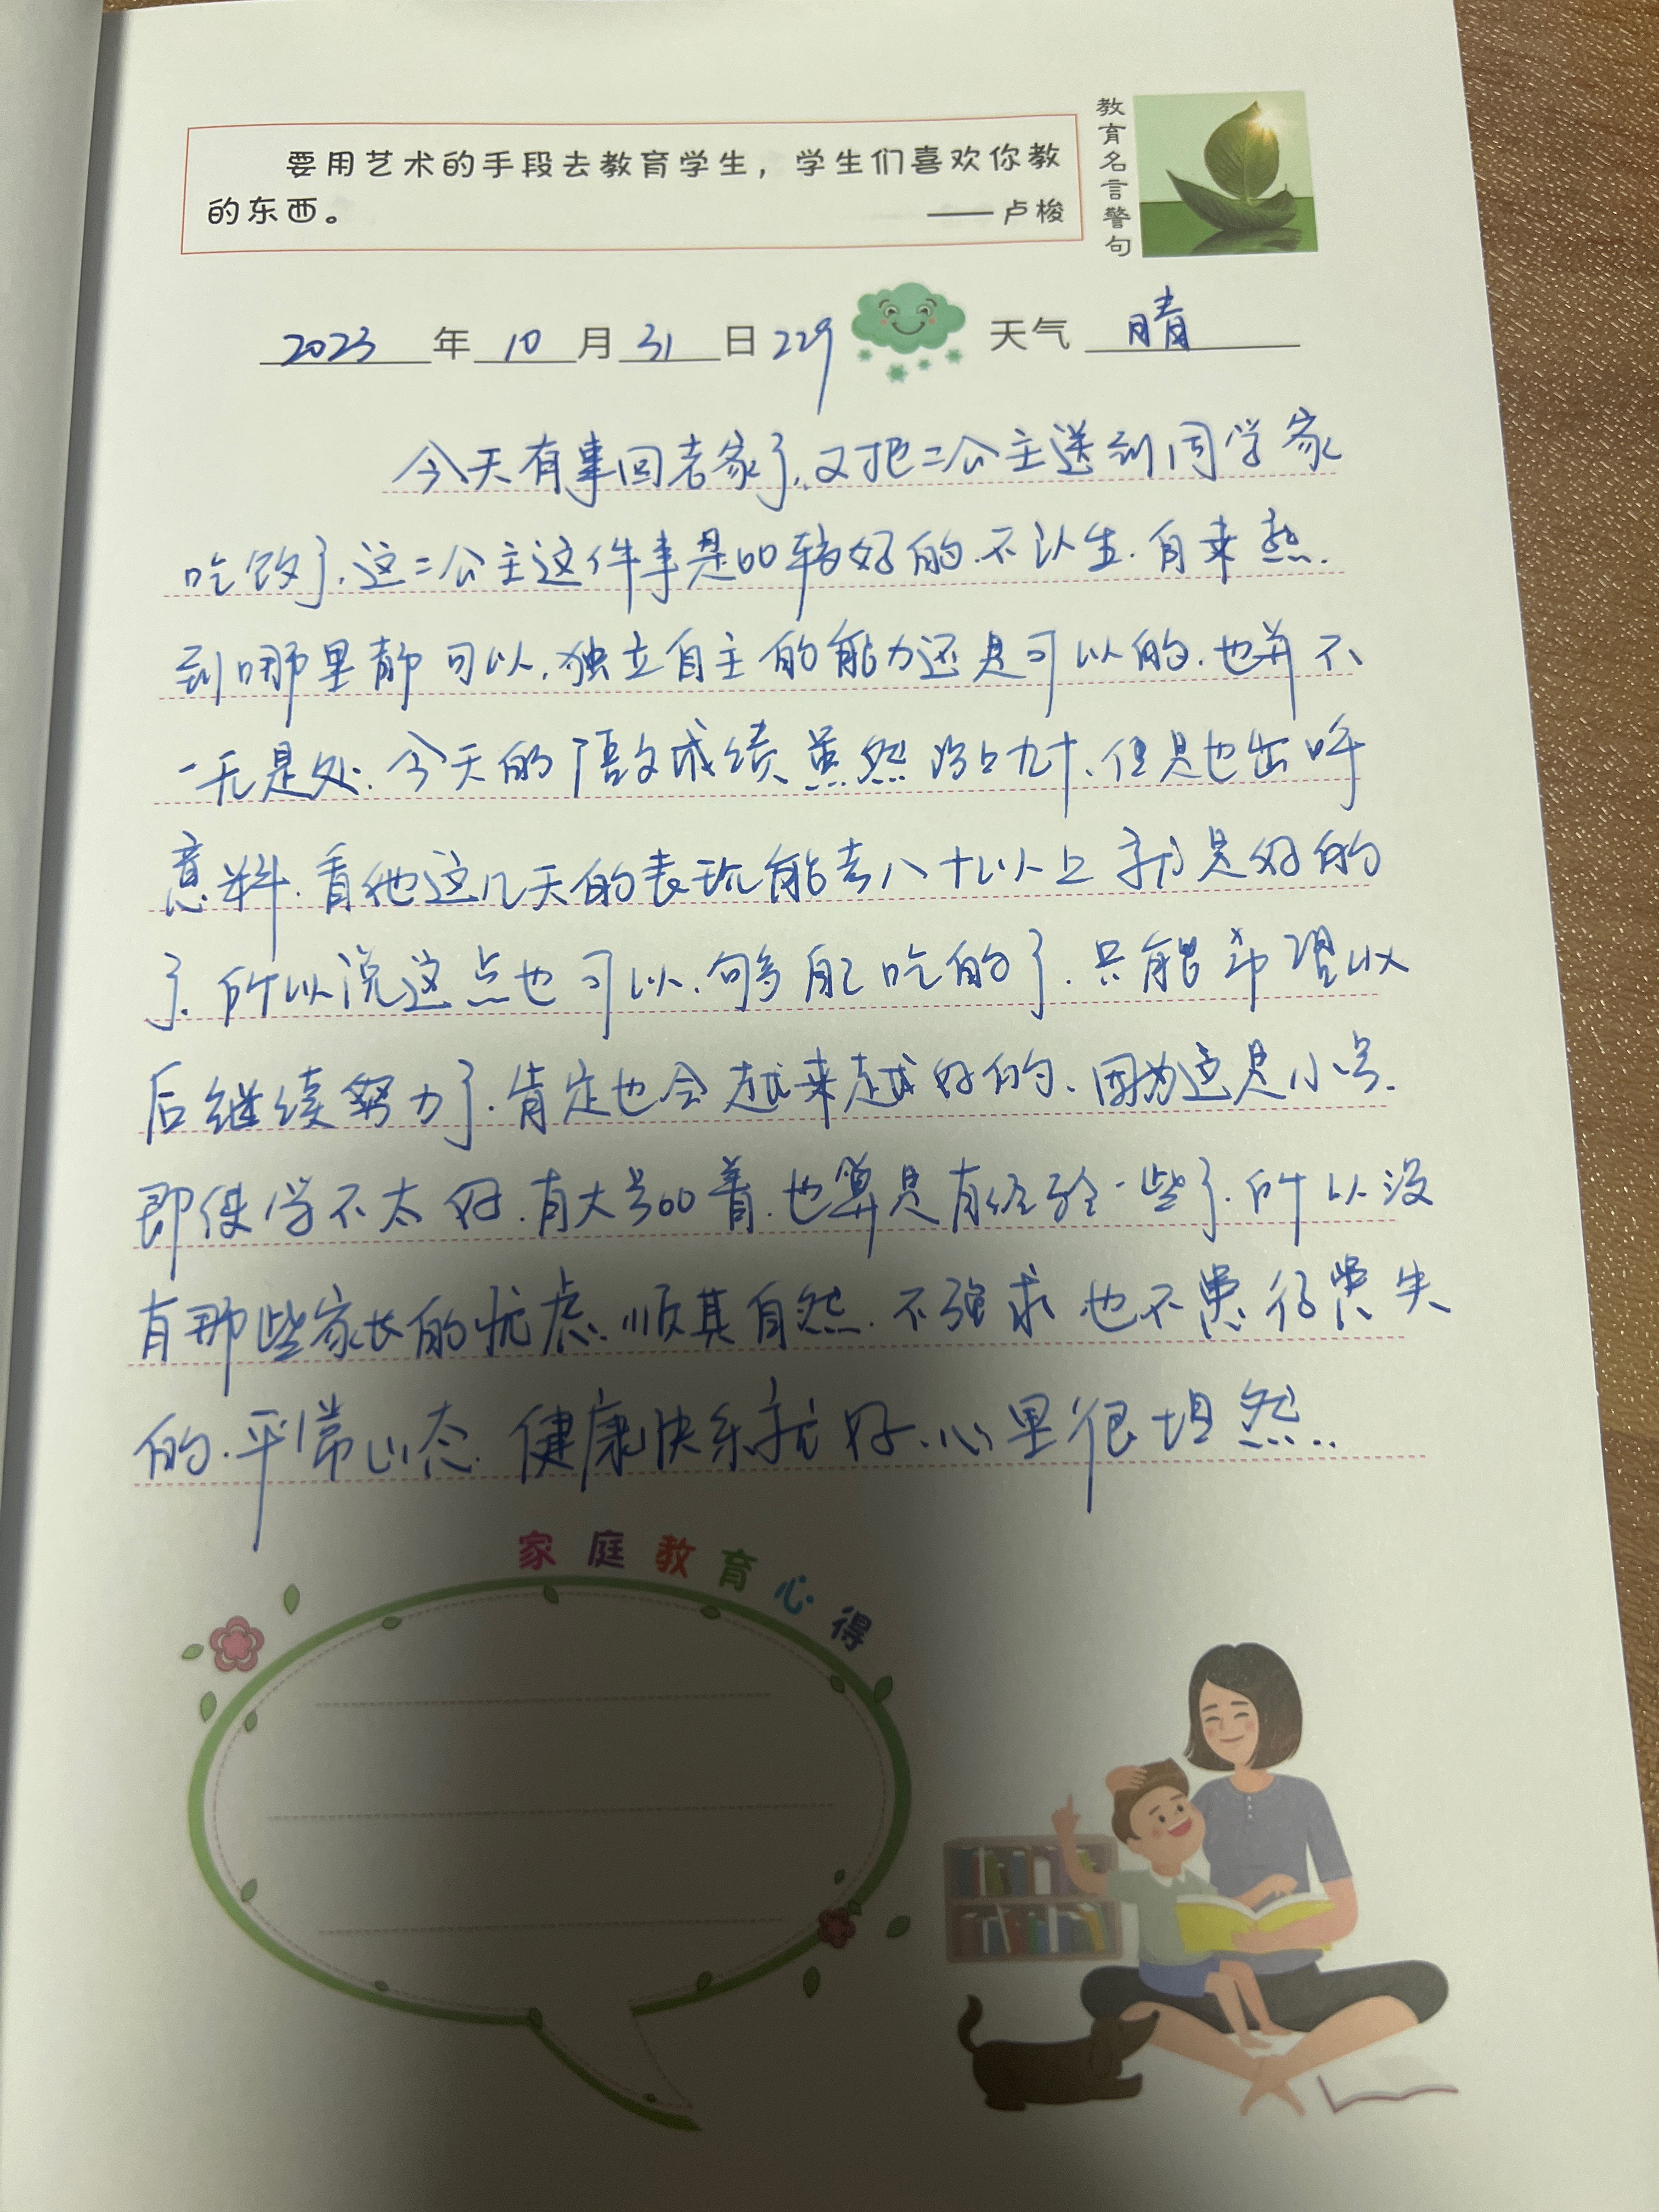 要用艺术的手段去教育学生，学生们喜欢你教
的东西。
——卢梭
教育名言警句
2023年10月31日229 天气 晴
今天有事回老家了,又把二公主送到同学家
吃饭了.这二公主这件事是比较好的.不认生.自来熟.
到哪里都可以,独立自主的能力还是可以的.也并不
一无是处.今天的语文成绩虽然没上九十.但是也出乎
意料.看他这几天的表现能考八十以上就是好的
了.所以说这点也可以.够自己吃的了.只能希望以
后继续努力了.肯定也会越来越好的.因为这是小号.
即使学不太好.有大号比着.也算是有经验一些了.所以没
有那些家长的忧虑.顺其自然.不强求也不患得患失
的.平常心态.健康快乐就好.心里很坦然..
家庭教育心得